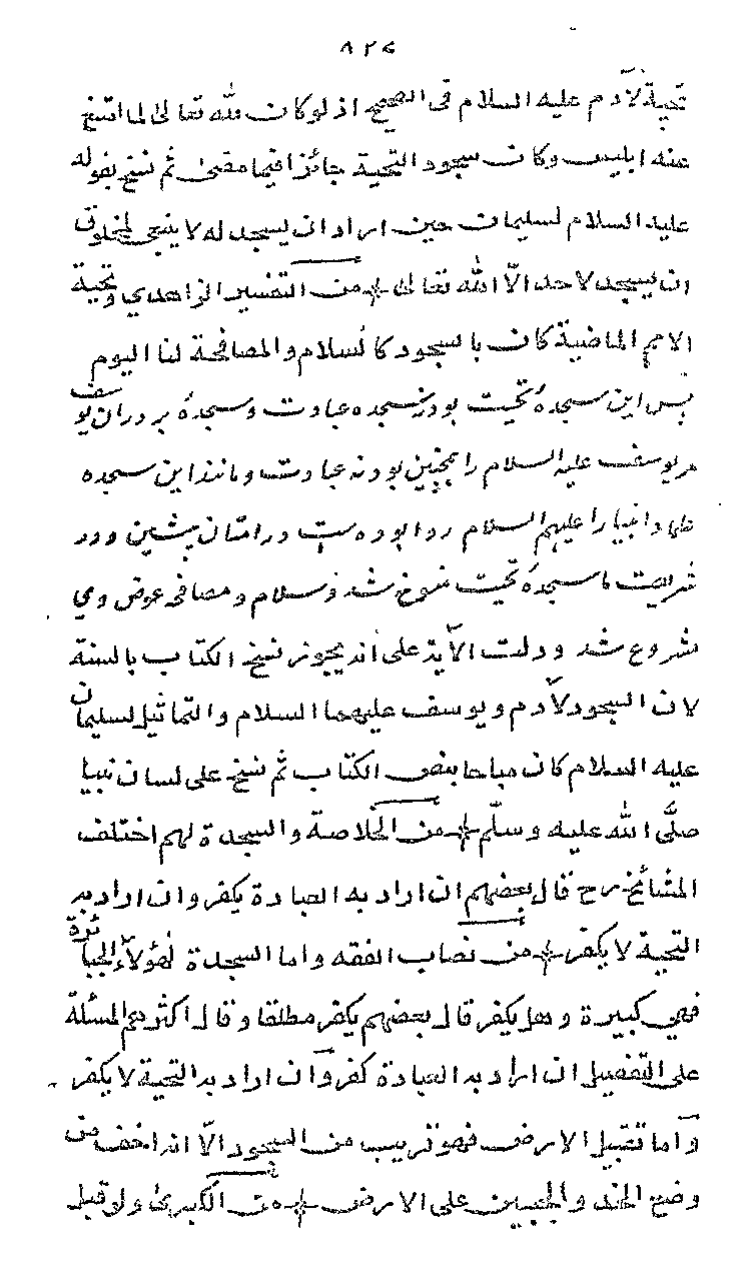 ٨٢٧
تحية لآدم عليه السلام فى الصحيح اذ لو كان لله تعالىٰ لما امتنع
عنه ابليس وكان سجود التحية جائزا فيما مضىٰ ثم نسخ بقوله
عليه السلام لسليمان حين اراد ان يسجد له لا ينبغى لمخلوق
ان يسجد لاحد الّا الله تعالىٰ من التفسير الزاهدي وتحية
الامم الماضية كان بالسجود كالسلام والمصافحة لنا اليوم
پس اين سجدهٔ تحيت بود نه سجده عبادت و سجدهٔ برادران يوسف
مر يوسف عليه السلام را همچنين بود نه عبادت و مانند اين سجده
علما و انبيا را عليهم السلام روا بوده ست در امتان پيشين و در
شريعت ما سجدهٔ تحيت منسوخ شد و سلام و مصافحه عوض وي
مشروع شد ودلت الآية على انه يجوز نسخ الكتاب بالسنة
لان السجود لآدم ويوسف عليهما السلام والتماثيل لسليمان
عليه السلام كان مباحا بنص الكتاب ثم نسخ على لسان نبينا
صلَّى الله عليه وسلّم من الخلاصة والسجدة لهم اختلف
المشائخ رح قال بعضهم ان اراد به العبادة يكفر وان اراد به
التحية لا يكفر من نصاب الفقه واما السجدة لهؤلآء الجبائرة
فهي كبيرة وهل يكفر قال بعضهم يكفر مطلقا وقال اكثرهم المسئلة
على التفصيل ان اراد به العبادة كفر وان اراد به التحية لا يكفر
واما تقبيل الارض فهو قريب من السجود الّا انه اخف من
وضع الخد والجبين على الارض من الكبرىٰ ولو قبل